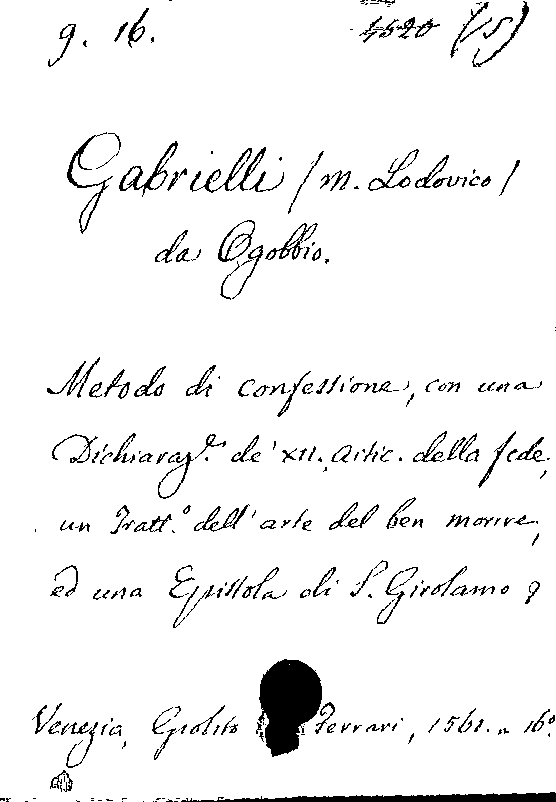 g. 16. 4520 (15)
Gabrielli / m. Lodovico /
da Ogobbio.
Metodo di confessione, con una
Dichiaraz.e de' XII. Artic. della fede,
un Tratt.o dell'arte del ben morire,
ed una Epistola di S. Girolamo
Venezia, Giolito Ferrari, 1561. 16.o